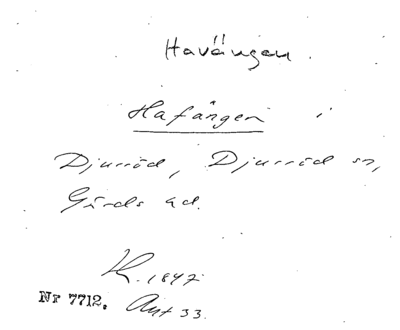 Havängen.
Hafängen i
Djurröd, Djurröd sn,
Gärds hd.
K. 1847
Nr 7712. Akt 33.